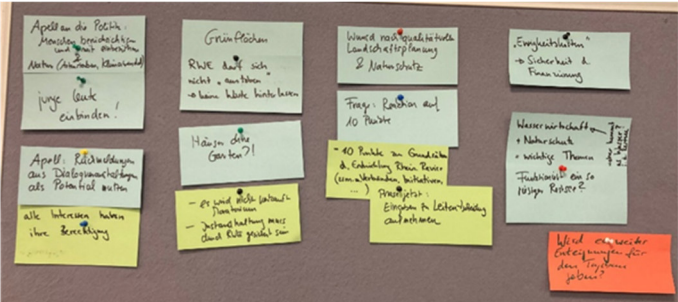 Apell an die Politik:
Menschen berücksichtigen
und mit einbeziehen
&
Natur (Klimawandel)
junge Leute
einbinden!
Apell: Rückmeldungen
aus Dialogveranstaltungen
als Potential nutzen
alle Interessen haben
ihre Berechtigung
Grünflächen
RWE darf sich
nicht "austoben"
→ keine Wüste hinterlassen
Häuser ohne
Garten?!
- es wird nicht verkauft
Moratorium
- Instandhaltung muss
durch RWE gesichert sein
Wunsch nach qualitativer
Landschaftsplanung
& Naturschutz
Frage: Reaktion auf
10 Punkte
- 10 Punkte zu Grundsätzen
d. Entwicklung Rhein. Revier
Initiativen
...)
Eingaben zu Leitentscheidung
aufnehmen
"Ewigkeitskosten"
→ Sicherheit d.
Finanzierung
Wasserwirtschaft
+ Naturschutz
= wichtige Themen
woher kommt
d. Wasser?
Funktioniert ein so
riesiger Restsee?
Wird es weiter
Enteignungen für
den Tagebau
geben?